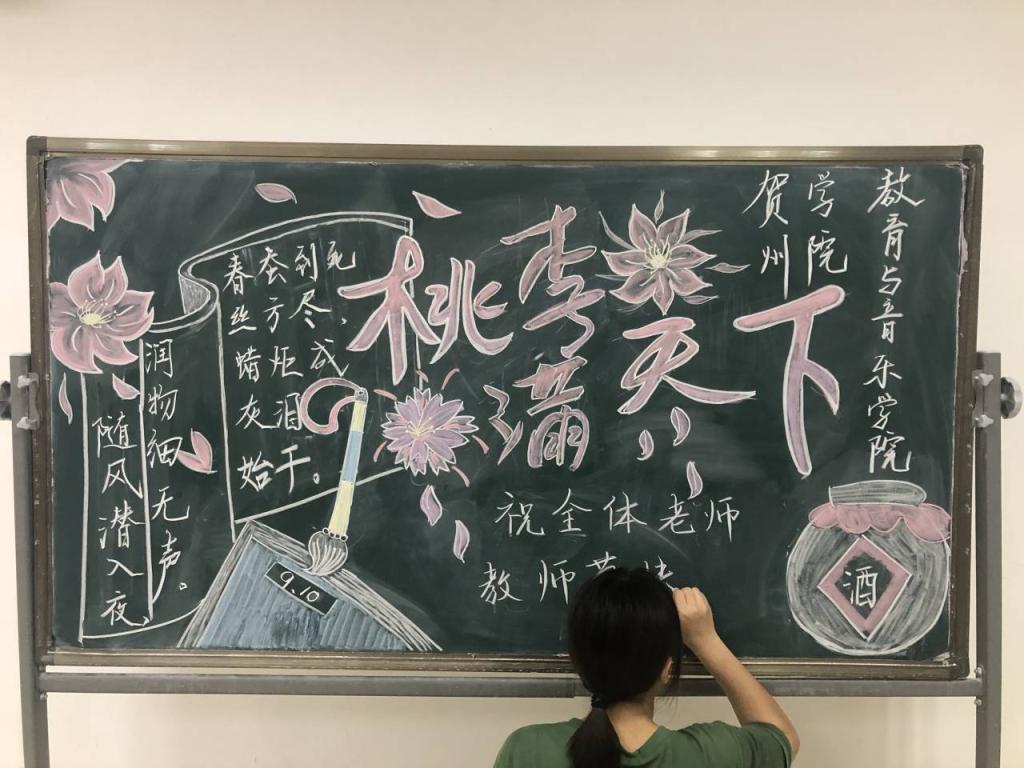 桃李满天下
贺州学院
教育与音乐学院
春蚕到死
丝方尽,
蜡炬成
灰泪
始干。
随风潜入夜,
润物细无声。
9.10
祝全体老师
教师
酒